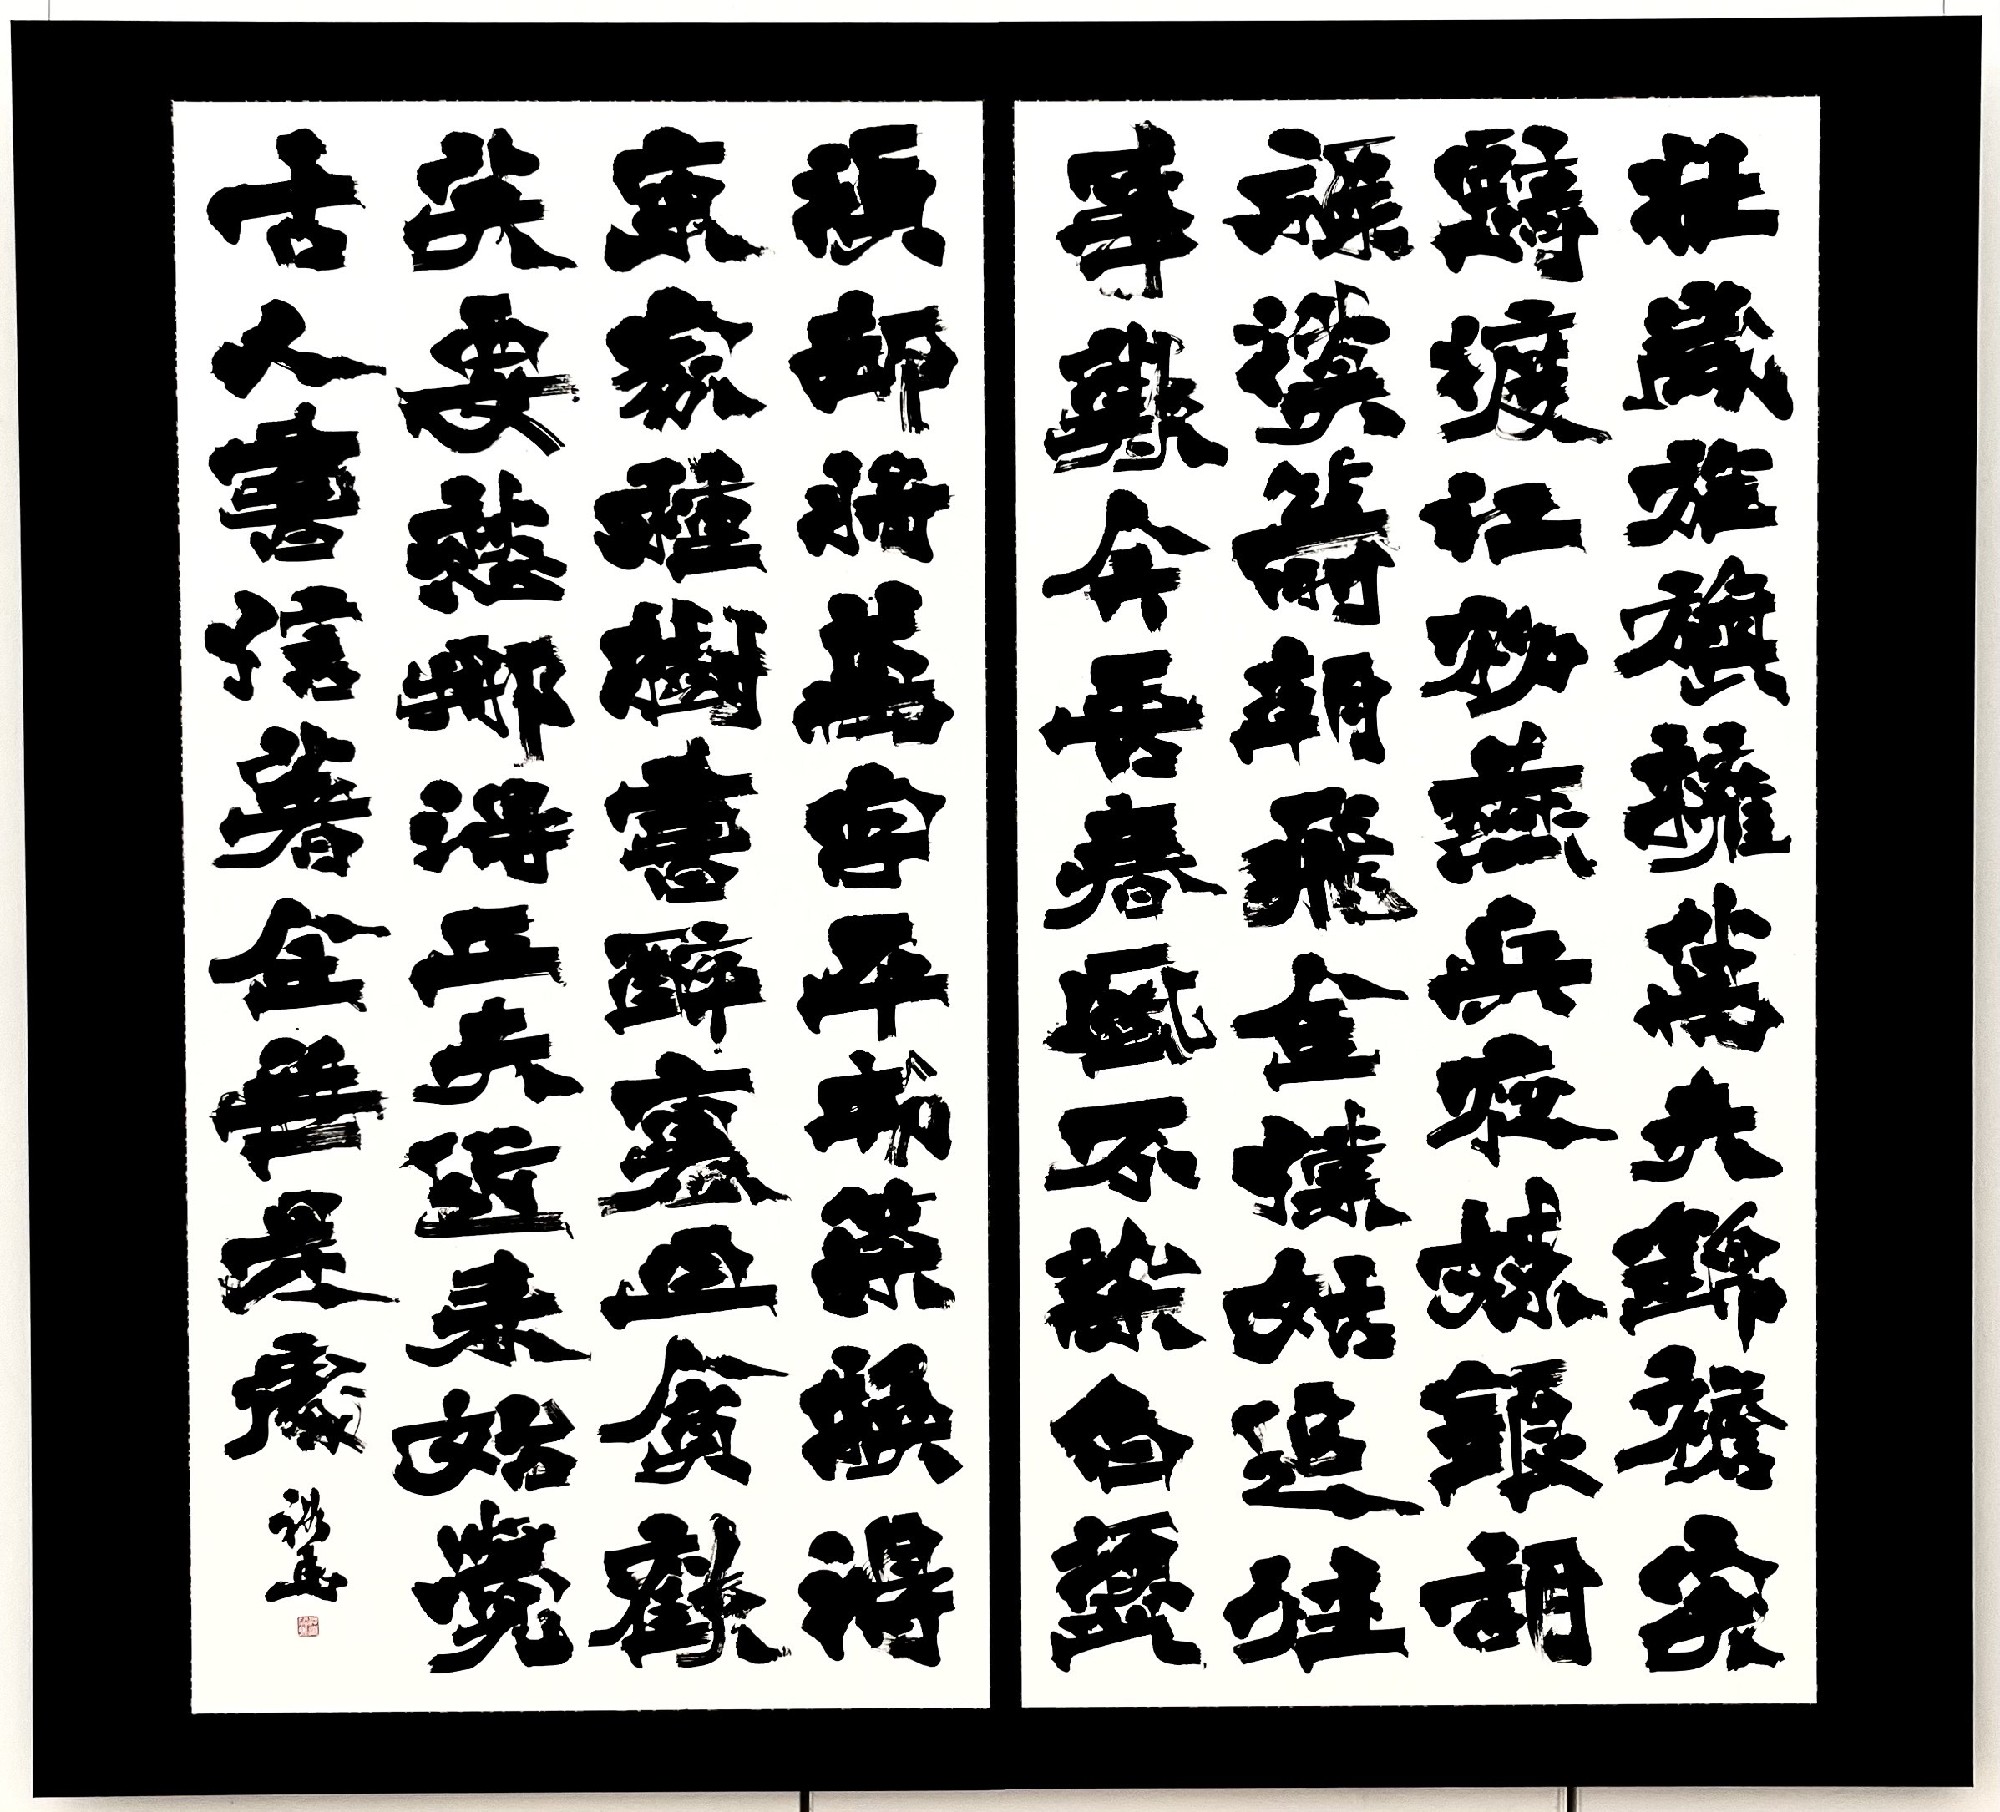 壯歲旌旗擁萬夫錦襜突
騎渡江初燕兵夜娖銀胡
漢箭朝飛金僕姑追往
事歎今吾春風不染白髭
須卻將萬字平戎策換得
東家種樹書醉裏且貪歡
笑要愁那得工夫近來始覺
古人書信著全無是處